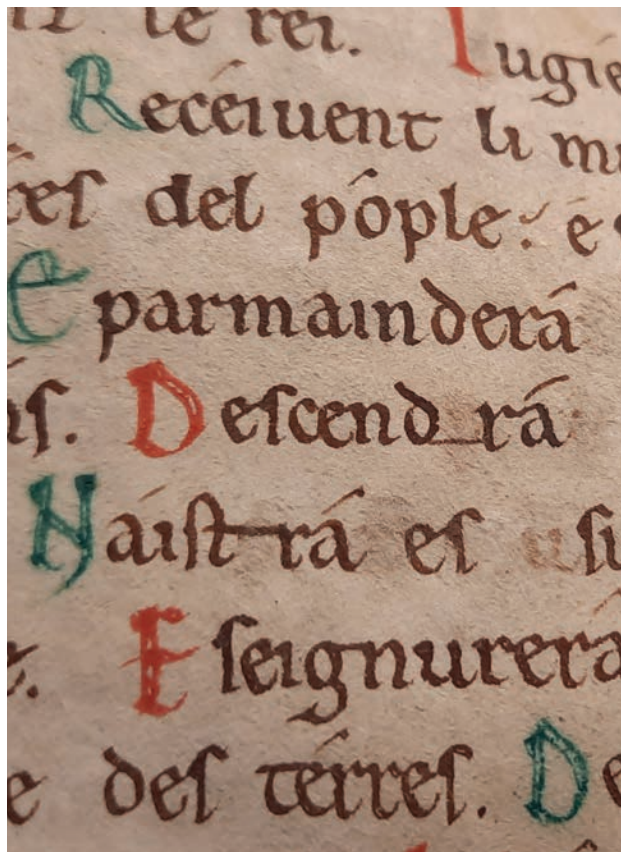 le rei. Iugie
Receiuent li mu
ces del pople: e
E parmainderá
Descendrá
Naistrá es su
E seignurerá
e des térres. De